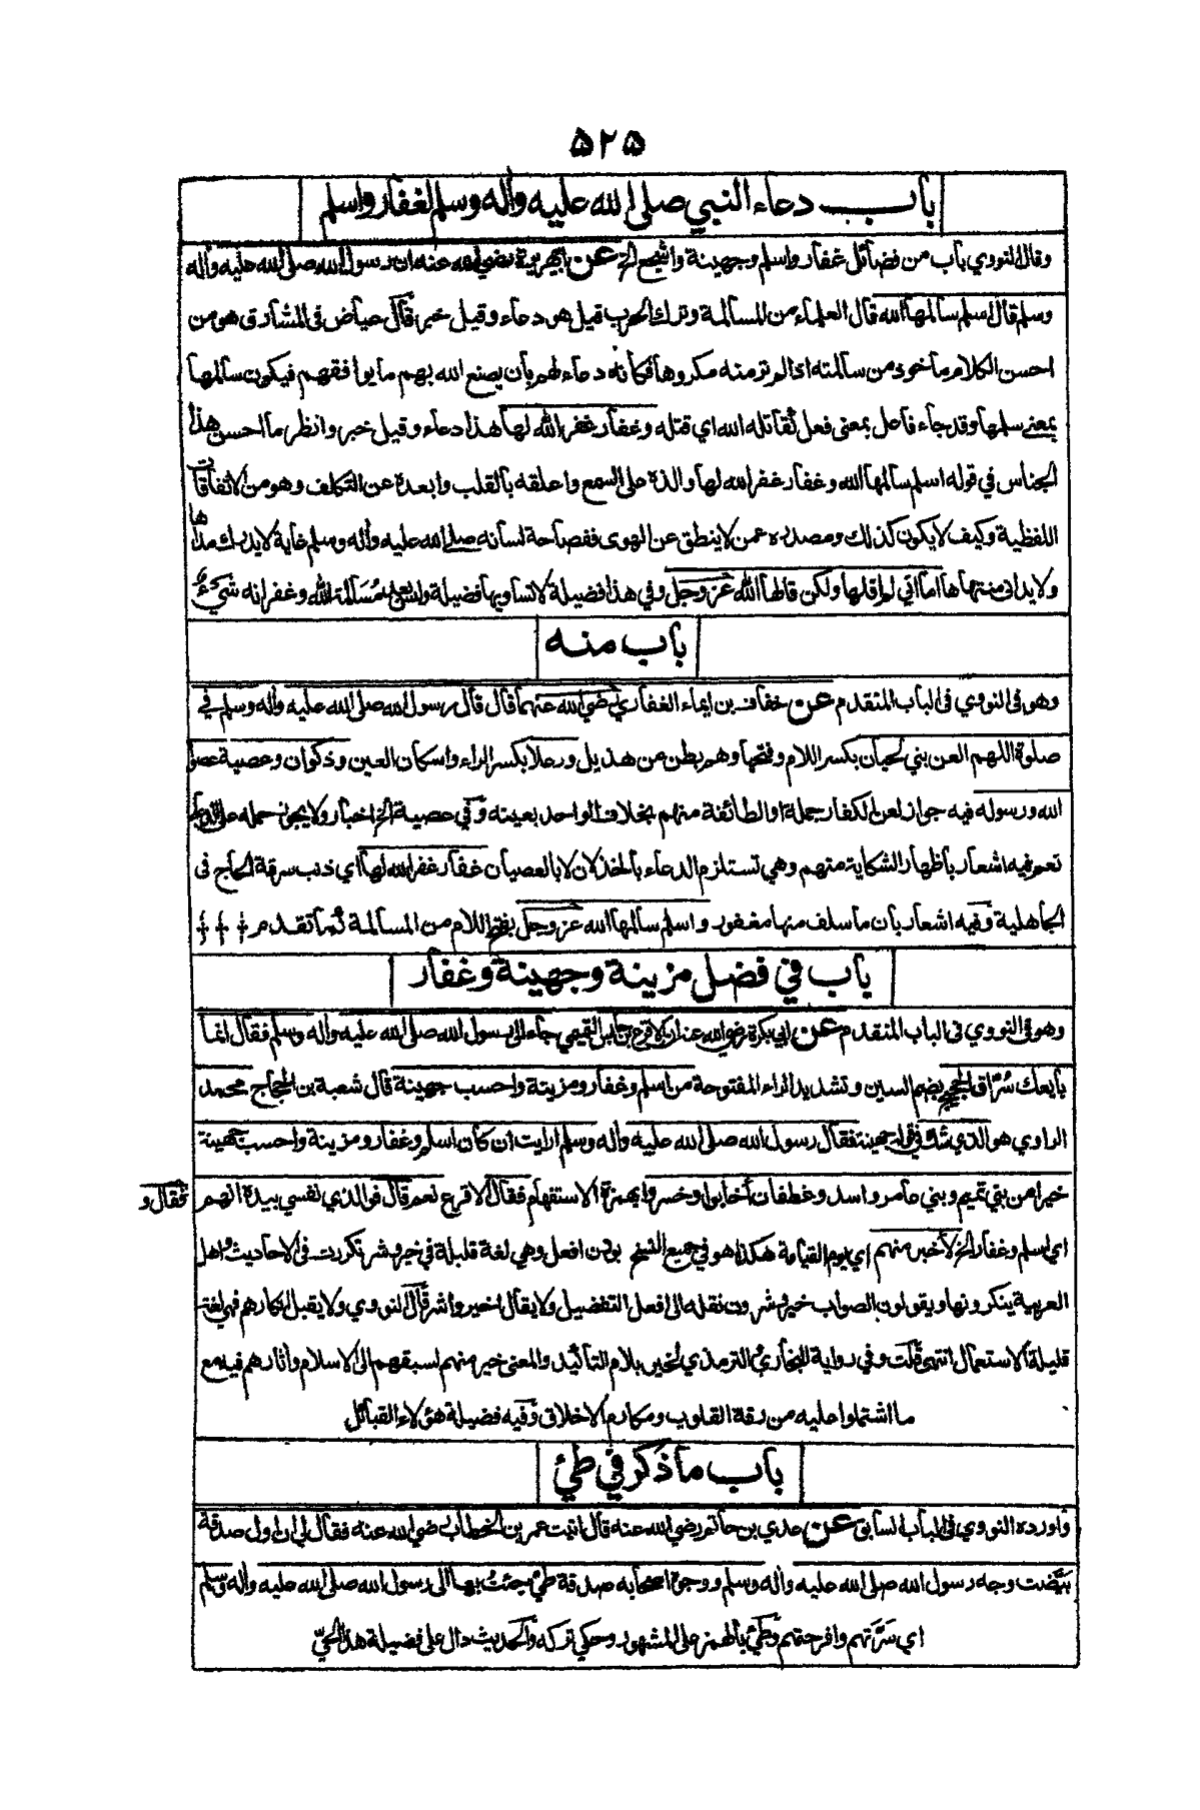 ۵۲۵
باب دعاء النبي صلى الله عليه وأله وسلم لغفار واسلم
وقال النووي باب من فضائل غفار واسلم وجهينة واشجع الخ عن ابي هريرة رضي الله عنه ان رسول الله صلى الله عليه وأله
وسلم قال اسلم سالمها الله قال العلماء من المسالمة وترك الحرب قيل هو دعاء وقيل خبر قال عياض في المشارق هو من
احسن الكلام مأخوذ من سالمته اذا لم تر منه مكروها فكانه دعاء لهم بان يصنع الله بهم ما يوافقهم فيكون سالمها
بمعنى سلمها وقد جاء فاعل بمعنى فعل كقاتله الله اي قتله وغفار غفر الله لها هذا دعاء وقيل خبر وانظر ما احسن هذا
الجناس في قوله اسلم سالمها الله وغفار غفر الله لها والذه على السمع واعلقه بالقلب وابعده عن التكلف وهو من الاتفاقات
اللفظية وكيف لا يكون كذلك ومصدره عمن لا ينطق عن الهوى ففصاحة لسانه صلى الله عليه وأله وسلم غاية لا يدرك مداها
ولا يدانى منتهاها اما اني لم اقلها ولكن قالها الله عز وجل وفي هذا فضيلة لا تساويها فضيلة وليس بعد مسالمة الله وغفرانه شيء
باب منه
وهو في النووي في الباب المتقدم عن خفاف بن ايماء الغفاري رضي الله عنهما قال قال رسول الله صلى الله عليه وأله وسلم في
صلوة اللهم العن بني لحيان بكسر اللام وفتحها وهم بطن من هذيل ورعلا بكسر الراء واسكان العين وذكوان وعصية عصوا
الله ورسوله فيه جواز لعن الكفار جملة او الطائفة منهم بخلاف الواحد بعينه وفي عصية الخ اخبار ولا يجوز حمله على الدعاء
نعم فيه اشعار باظهار الشكاية منهم وهي تستلزم الدعاء بالخذلان لا بالعصيان غفار غفر الله لها اي ذنب سرقة الحاج في
الجاهلية وفيه اشعار بان ما سلف منها مغفور واسلم سالمها الله عز وجل بفتح اللام من المسالمة كما تقدم
باب في فضل مزينة وجهينة وغفار
وهو في النووي في الباب المتقدم عن ابي بكرة رضي الله عنه ان الاقرع بن حابس التميمي جاء الى رسول الله صلى الله عليه وأله وسلم فقال انما
بايعك سُرّاق الحجيج بضم السين وتشديد الراء المفتوحة من اسلم وغفار ومزينة واحسب جهينة قال شعبة بن الحجاج محمد
الراوي هو الذي شك في قوله جهينة فقال رسول الله صلى الله عليه وأله وسلم ارايت ان كان اسلم وغفار ومزينة واحسب جهينة
خيرا من بني تميم وبني عامر واسد وغطفان أخابوا وخسروا بهمزة الاستفهام فقال الاقرع نعم قال فوالذي نفسي بيده انهم
فقال و
اي اسلم وغفار الخ لأخير منهم اي يوم القيامة هكذا هو في جميع النسخ بوزن افعل وهي لغة قليلة في خير وشر تكررت في الاحاديث واهل
العربية ينكرونها ويقولون الصواب خير وشر دون نقله الى افعل التفضيل ولا يقال اخير واشر قال النووي ولا يقبل انكارهم فهي لغة
قليلة الاستعمال انتهى قلت وفي رواية البخاري والترمذي لخير بلام التأكيد والمعنى خير منهم لسبقهم الى الاسلام وأثارهم فيه مع
ما اشتملوا عليه من رقة القلوب ومكارم الاخلاق وفيه فضيلة هؤلاء القبائل
باب ما ذكر في طئ
واورده النووي في الباب السابق عن عدي بن حاتم رضي الله عنه قال اتيت عمر بن الخطاب رضي الله عنه فقال لي ان اول صدقة
بيّضت وجه رسول الله صلى الله عليه وأله وسلم ووجوه اصحابه صدقة طئ جئت بها الى رسول الله صلى الله عليه وأله وسلم
اي سَرّتهم وافرحتهم وطئ بالهمز على المشهور وحكي تركه والحديث دال على فضيلة هذا الحيّ